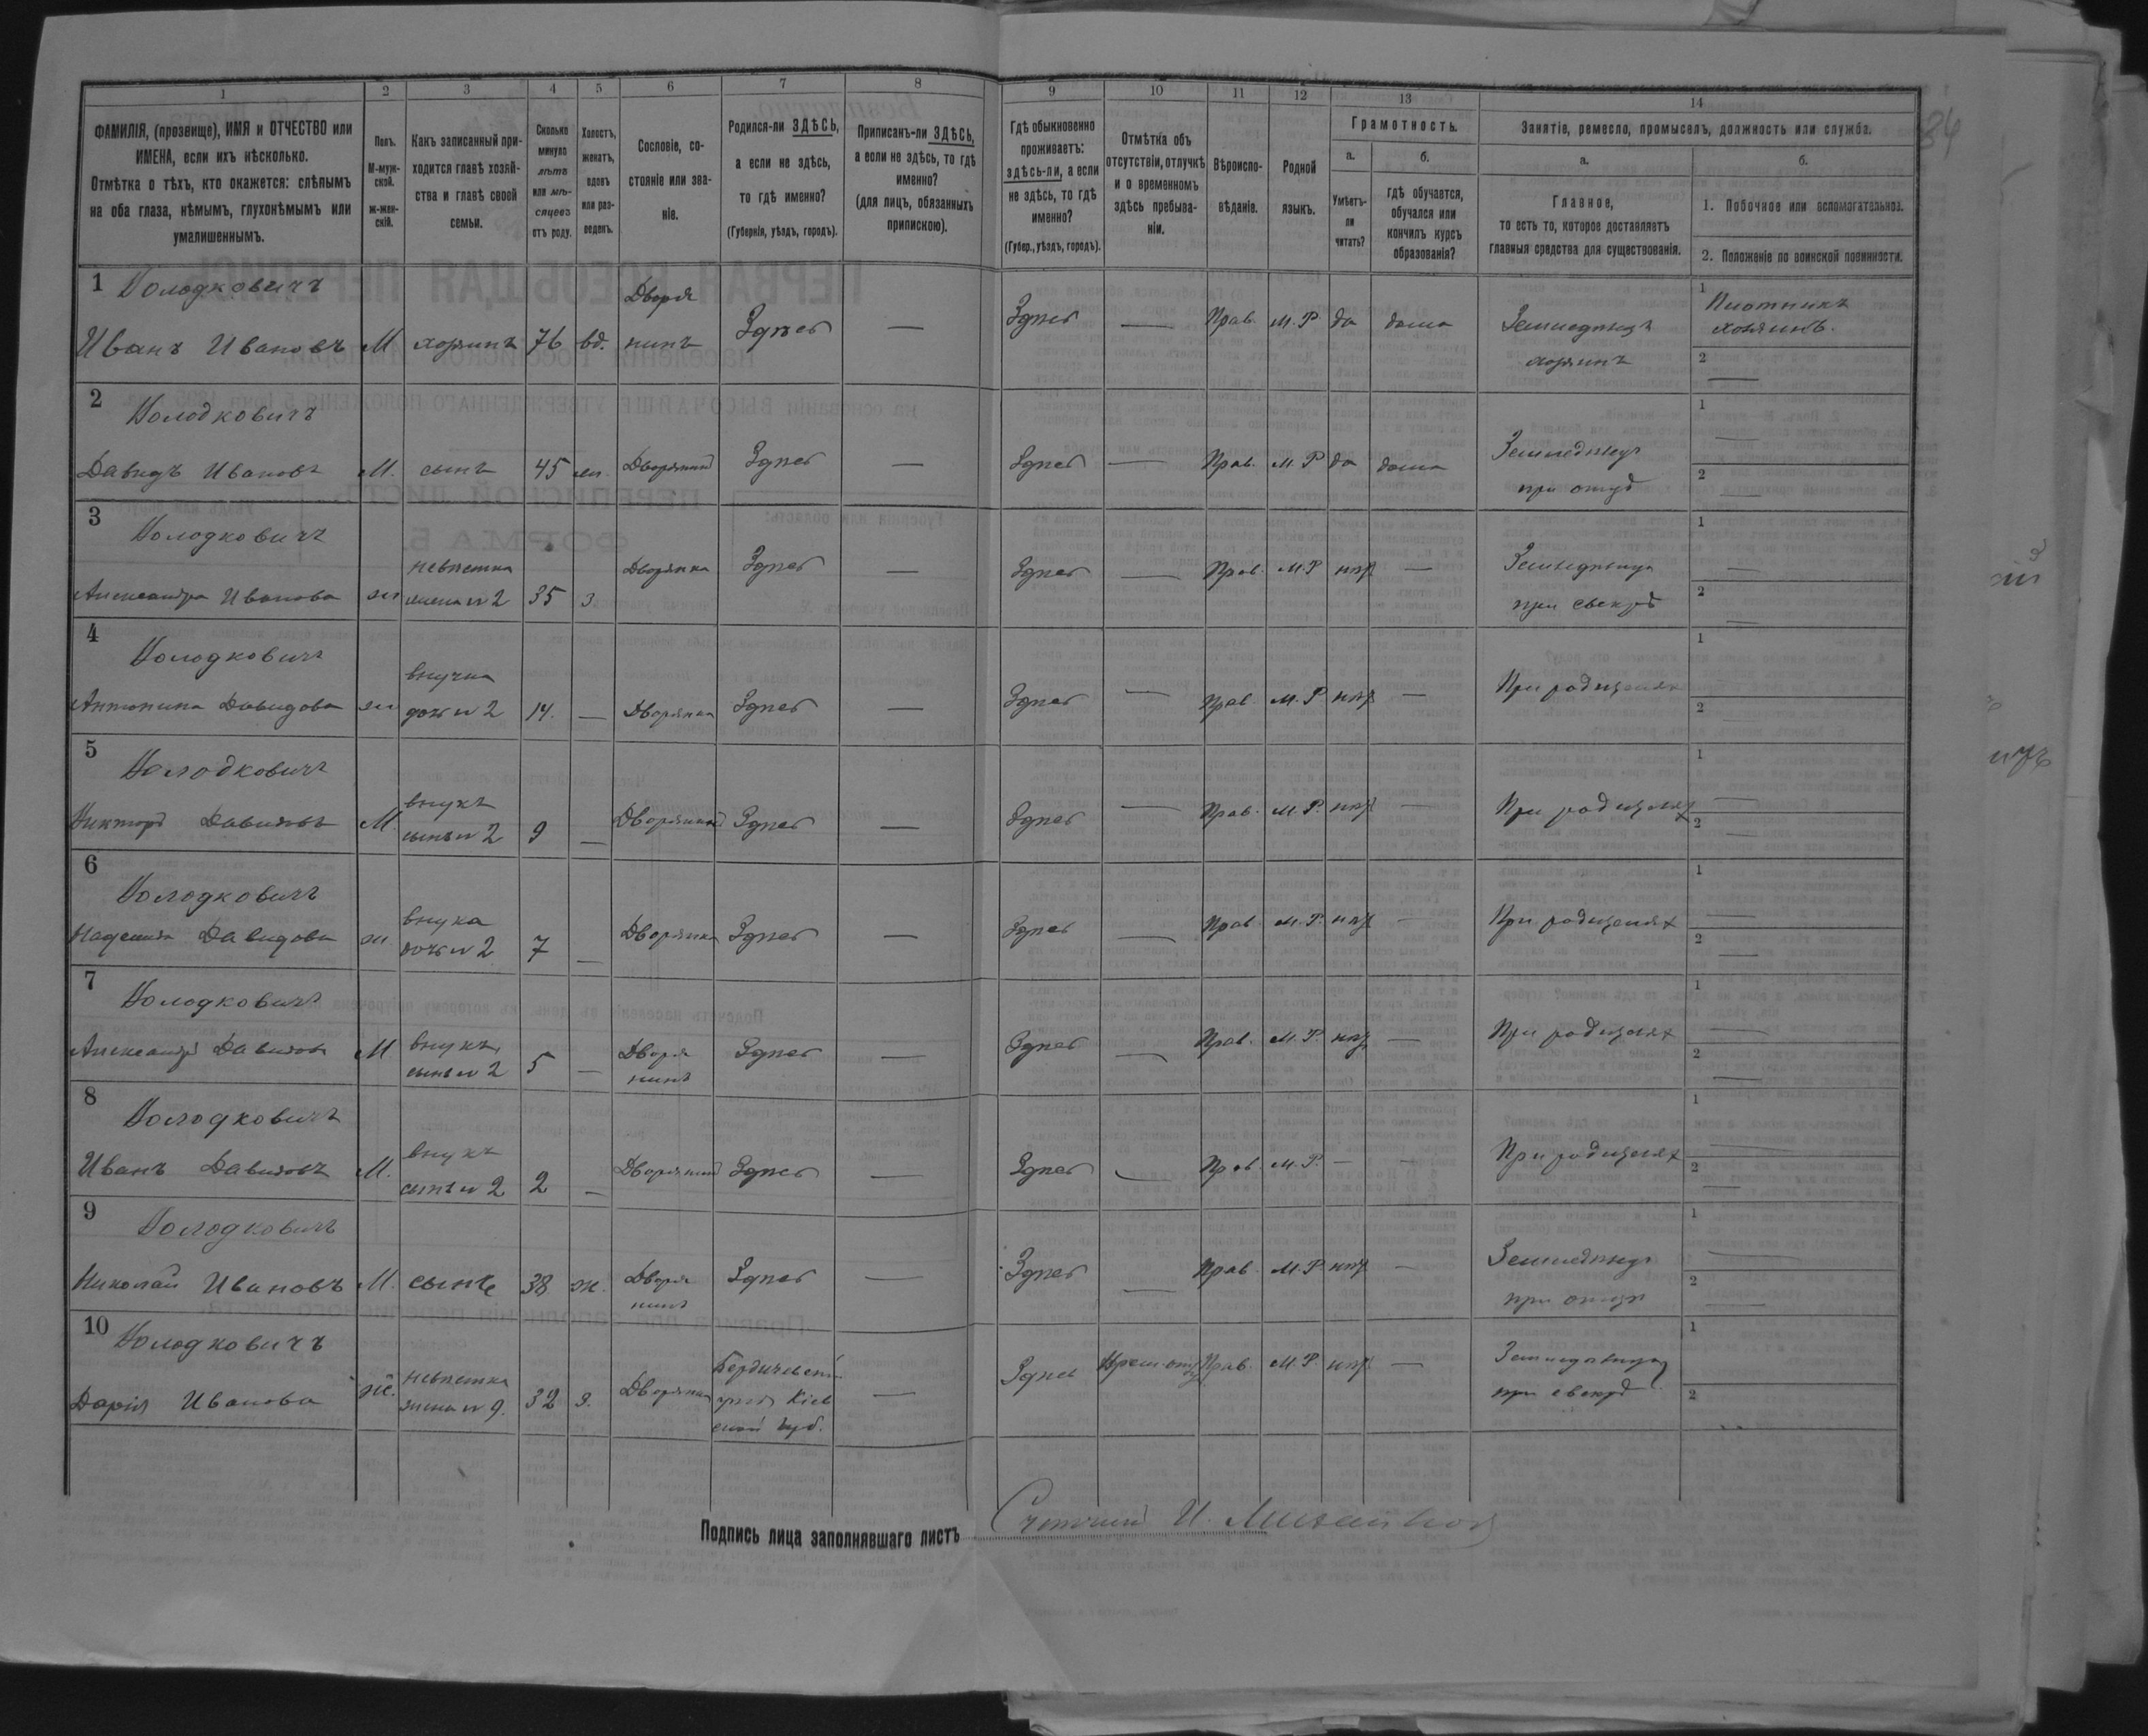 1 2 3 4 5 6 7 8 9 10 11 12 13 14
ФАМИЛІЯ, (прозвище), ИМЯ и ОТЧЕСТВО или
ИМЕНА, если ихъ нѣсколько.
Отмѣтка о тѣхъ, кто окажется: слѣпымъ
на оба глаза, нѣмымъ, глухонѣмымъ или
умалишеннымъ.
Полъ.
М-муж-
ской.
ж-жен-
скій.
Какъ записанный при-
ходится главѣ хозяй-
ства и главѣ своей
семьи.
Сколько
минуло
лѣтъ
или мѣ-
сяцевъ
отъ роду.
Холостъ,
женатъ,
вдовъ
или раз-
веденъ.
Сословіе, со-
стояніе или зва-
ніе.
Родился-ли ЗДѢСЬ,
а если не здѣсь,
то гдѣ именно?
(Губернія, уѣздъ, городъ).
Приписанъ-ли ЗДѢСЬ,
а если не здѣсь, то гдѣ
именно?
(для лицъ, обязанныхъ
припискою).
Гдѣ обыкновенно
проживаетъ:
здѣсь-ли, а если
не здѣсь, то гдѣ
именно?
(Губер., уѣздъ, городъ).
Отмѣтка объ
отсутствіи, отлучкѣ
и о временномъ
здѣсь пребыва-
ніи.
Вѣроиспо-
вѣданіе.
Родной
языкъ.
Грамотность.
а.
Умѣетъ-
ли
читать?
б.
гдѣ обучается,
обучался или
кончилъ курсъ
образованія?
Занятіе, ремесло, промыселъ, должность или служба.
а.
Главное,
то есть то, которое доставляетъ
главныя средства для существованія.
б.
1. Побочное или вспомогательное.
2. Положеніе по воинской повинности.
34
1 Володковичъ
Иванъ Ивановъ М хозяинъ 76 вд. Дворя
нинъ Здѣсь — Здѣсь — Прав. М.Р. да дома Земледѣлецъ
хозяинъ
1 Плотникъ
хозяинъ.
2 —
2 Володковичъ
Давидъ Ивановъ М. сынъ 45 ж. Дворянинъ Здѣсь — Здѣсь — Прав. М.Р. да дома Земледѣлецъ
при отцѣ
1 —
2 —
3 Володковичъ
Александра Иванова ж невѣстка
жена № 2 35 з. Дворянка Здѣсь — Здѣсь — Прав. М.Р. нѣт — Земледѣлица
при свекрѣ
1 —
2 —
4 Володковичъ
Антонина Давидова ж внучка
дочь № 2 14. — Дворянка Здѣсь — Здѣсь — Прав. М.Р. нѣт — При родителях
1 —
2 —
5 Володковичъ
Викторъ Давидовъ М. внукъ
сынъ № 2 9 — Дворянинъ Здѣсь — Здѣсь — Прав. М.Р. нѣт — При родителях
1 —
2 —
6 Володковичъ
Надежда Давидова ж внука
дочь № 2 7 — Дворянка Здѣсь — Здѣсь — Прав. М.Р. нѣт — При родителях
1 —
2 —
7 Володковичъ
Александръ Давидовъ М внукъ
сынъ № 2 5 — Дворя
нинъ Здѣсь — Здѣсь — Прав. М.Р. нѣт — При родителях
1 —
2 —
8 Володковичъ
Иванъ Давидовъ М. внукъ
сынъ № 2 2 — Дворянинъ Здѣсь — Здѣсь — Прав М.Р. — — При родителях
1 —
2 —
9 Володковичъ
Николай Ивановъ М. сынъ 38 ж. Дворя
нинъ Здѣсь — Здѣсь — Прав. М.Р. нѣт — Земледѣлецъ
при отцѣ
1 —
2 —
10 Володковичъ
Дарія Иванова ж. невѣстка
жена № 9. 32 з. Дворянка Бердичевскій
уѣздъ Кіев
ской губ. — Здѣсь Прав. М.Р. нѣт — Земледѣлица
при свекрѣ
1
2
Подпись лица заполнявшаго листъ
Счетчикъ И.